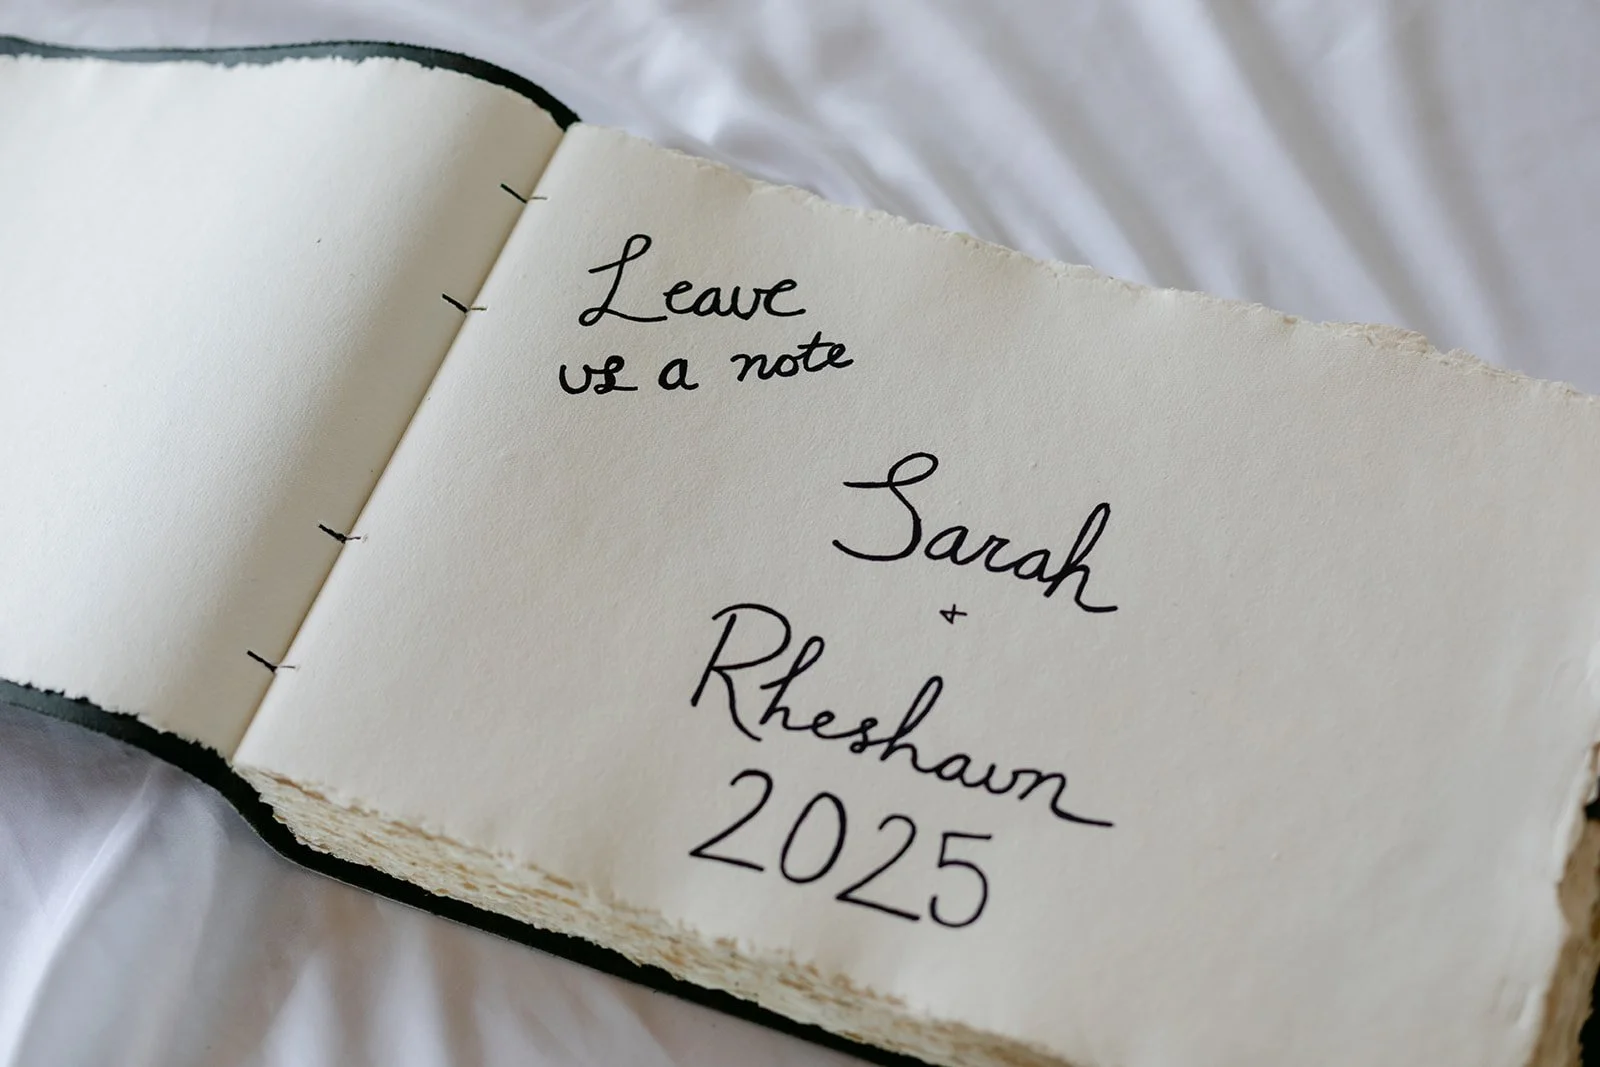 Leave
us a note
Sarah
+
Rheshawn
2025